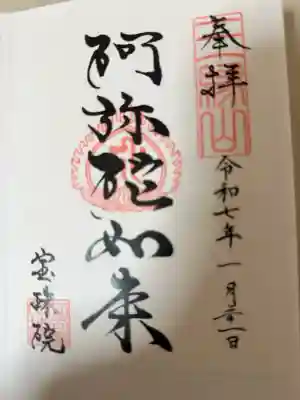 奉拝
令和七年一月二十一日
阿弥陀如来
宝珠院